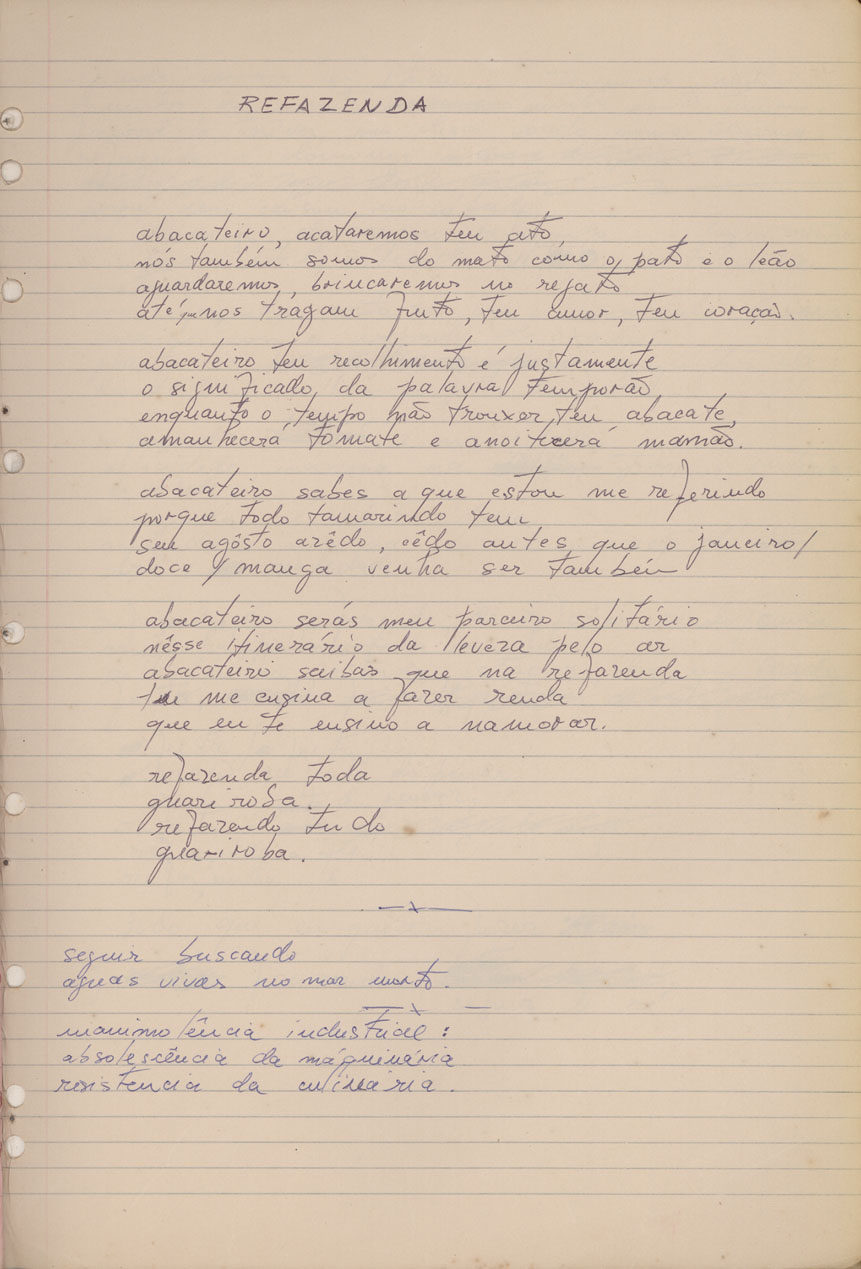 REFAZENDA
abacateiro, acataremos teu ato
nós também somos do mato como o pato e o leão
aguardaremos, brincaremos no regato
até que nos tragam fruto, teu amor, teu coração.
abacateiro teu recolhimento é justamente
o significado da palavra temporão
enquanto o tempo não trouxer teu abacate,
amanhecerá tomate e anoitecerá mamão.
abacateiro sabes a que estou me referindo
porque todo tamarindo tem
seu agôsto azêdo, cêdo antes que o janeiro/
doce manga venha ser também
abacateiro serás meu parceiro solitário
nêsse itinerário da leveza pelo ar
abacateiro saibas que na refazenda
tu me ensina a fazer renda
que eu te ensino a namorar.
refazenda toda
guariroba.
refazendo tudo
guariroba.
seguir buscando
águas vivas no mar morto.
industrial:
absolescência da máquinária
resistência da culinária.